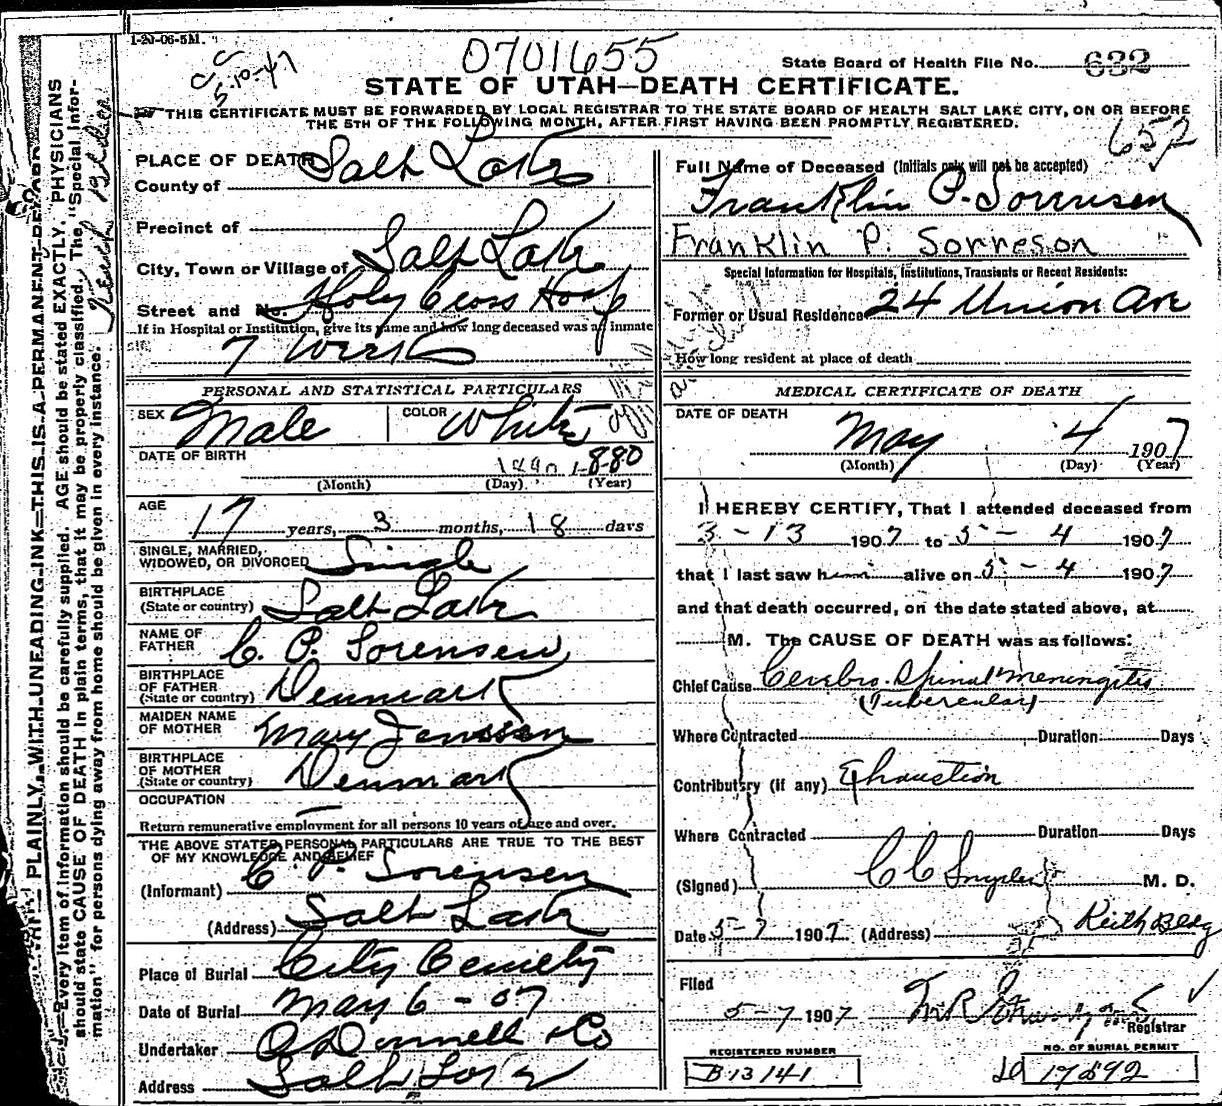 1-20-06-5M.
5-10-47
0701655
State Board of Health File No. 632
STATE OF UTAH—DEATH CERTIFICATE.
THIS CERTIFICATE MUST BE FORWARDED BY LOCAL REGISTRAR TO THE STATE BOARD OF HEALTH SALT LAKE CITY, ON OR BEFORE
THE 5TH OF THE FOLLOWING MONTH, AFTER FIRST HAVING BEEN PROMPTLY REGISTERED.
657
PLAINLY WITH UNFADING INK—THIS IS A PERMANENT
Every item of information should be carefully supplied. AGE should be stated EXACTLY. PHYSICIANS
should state CAUSE OF DEATH in plain terms, that it may be properly classified. The "Special Infor-
mation" for persons dying away from home should be given in every instance.
PLACE OF DEATH
County of Salt Lake
Precinct of
City, Town or Village of Salt Lake
Street and No. Holy Cross Hosp
If in Hospital or Institution, give its name and how long deceased was an inmate
7 Weeks
PERSONAL AND STATISTICAL PARTICULARS
SEX Male COLOR White
DATE OF BIRTH 1890 1880
(Month) (Day) (Year)
AGE 17 years, 3 months, 18 days
SINGLE, MARRIED,
WIDOWED, OR DIVORCED Single
BIRTHPLACE
(State or country) Salt Lake
NAME OF
FATHER C. P. Sorensen
BIRTHPLACE
OF FATHER
(State or country) Denmark
MAIDEN NAME
OF MOTHER Mary Jenssen
BIRTHPLACE
OF MOTHER
(State or country) Denmark
OCCUPATION —
Return remunerative employment for all persons 10 years of age and over.
THE ABOVE STATED PERSONAL PARTICULARS ARE TRUE TO THE BEST
OF MY KNOWLEDGE AND BELIEF
(Informant) C. P. Sorensen
(Address) Salt Lake
Place of Burial City Cemetery
Date of Burial May 6 - 07
Undertaker O'Donnell & Co
Address Salt Lake
Full Name of Deceased (Initials only will not be accepted)
Franklin P. Sorensen
Franklin P. Sorreson
Special Information for Hospitals, Institutions, Transients or Recent Residents:
Former or Usual Residence 24 Union Ave
How long resident at place of death
MEDICAL CERTIFICATE OF DEATH
DATE OF DEATH
May 4 1907
(Month) (Day) (Year)
I HEREBY CERTIFY, That I attended deceased from
3 - 13 1907 to 5 - 4 1907
that I last saw him alive on 5 - 4 1907
and that death occurred, on the date stated above, at
M. The CAUSE OF DEATH was as follows:
Chief Cause Cerebro-Spinal Meningitis
(Tubercular)
Where Contracted Duration Days
Contributory (if any) Exhaustion
Where Contracted Duration Days
(Signed) C C Snyder M. D.
Date 5-7 1907 (Address) Keith Bldg
Filed
5-7 1907
Registrar
REGISTERED NUMBER
B13141
NO. OF BURIAL PERMIT
17892